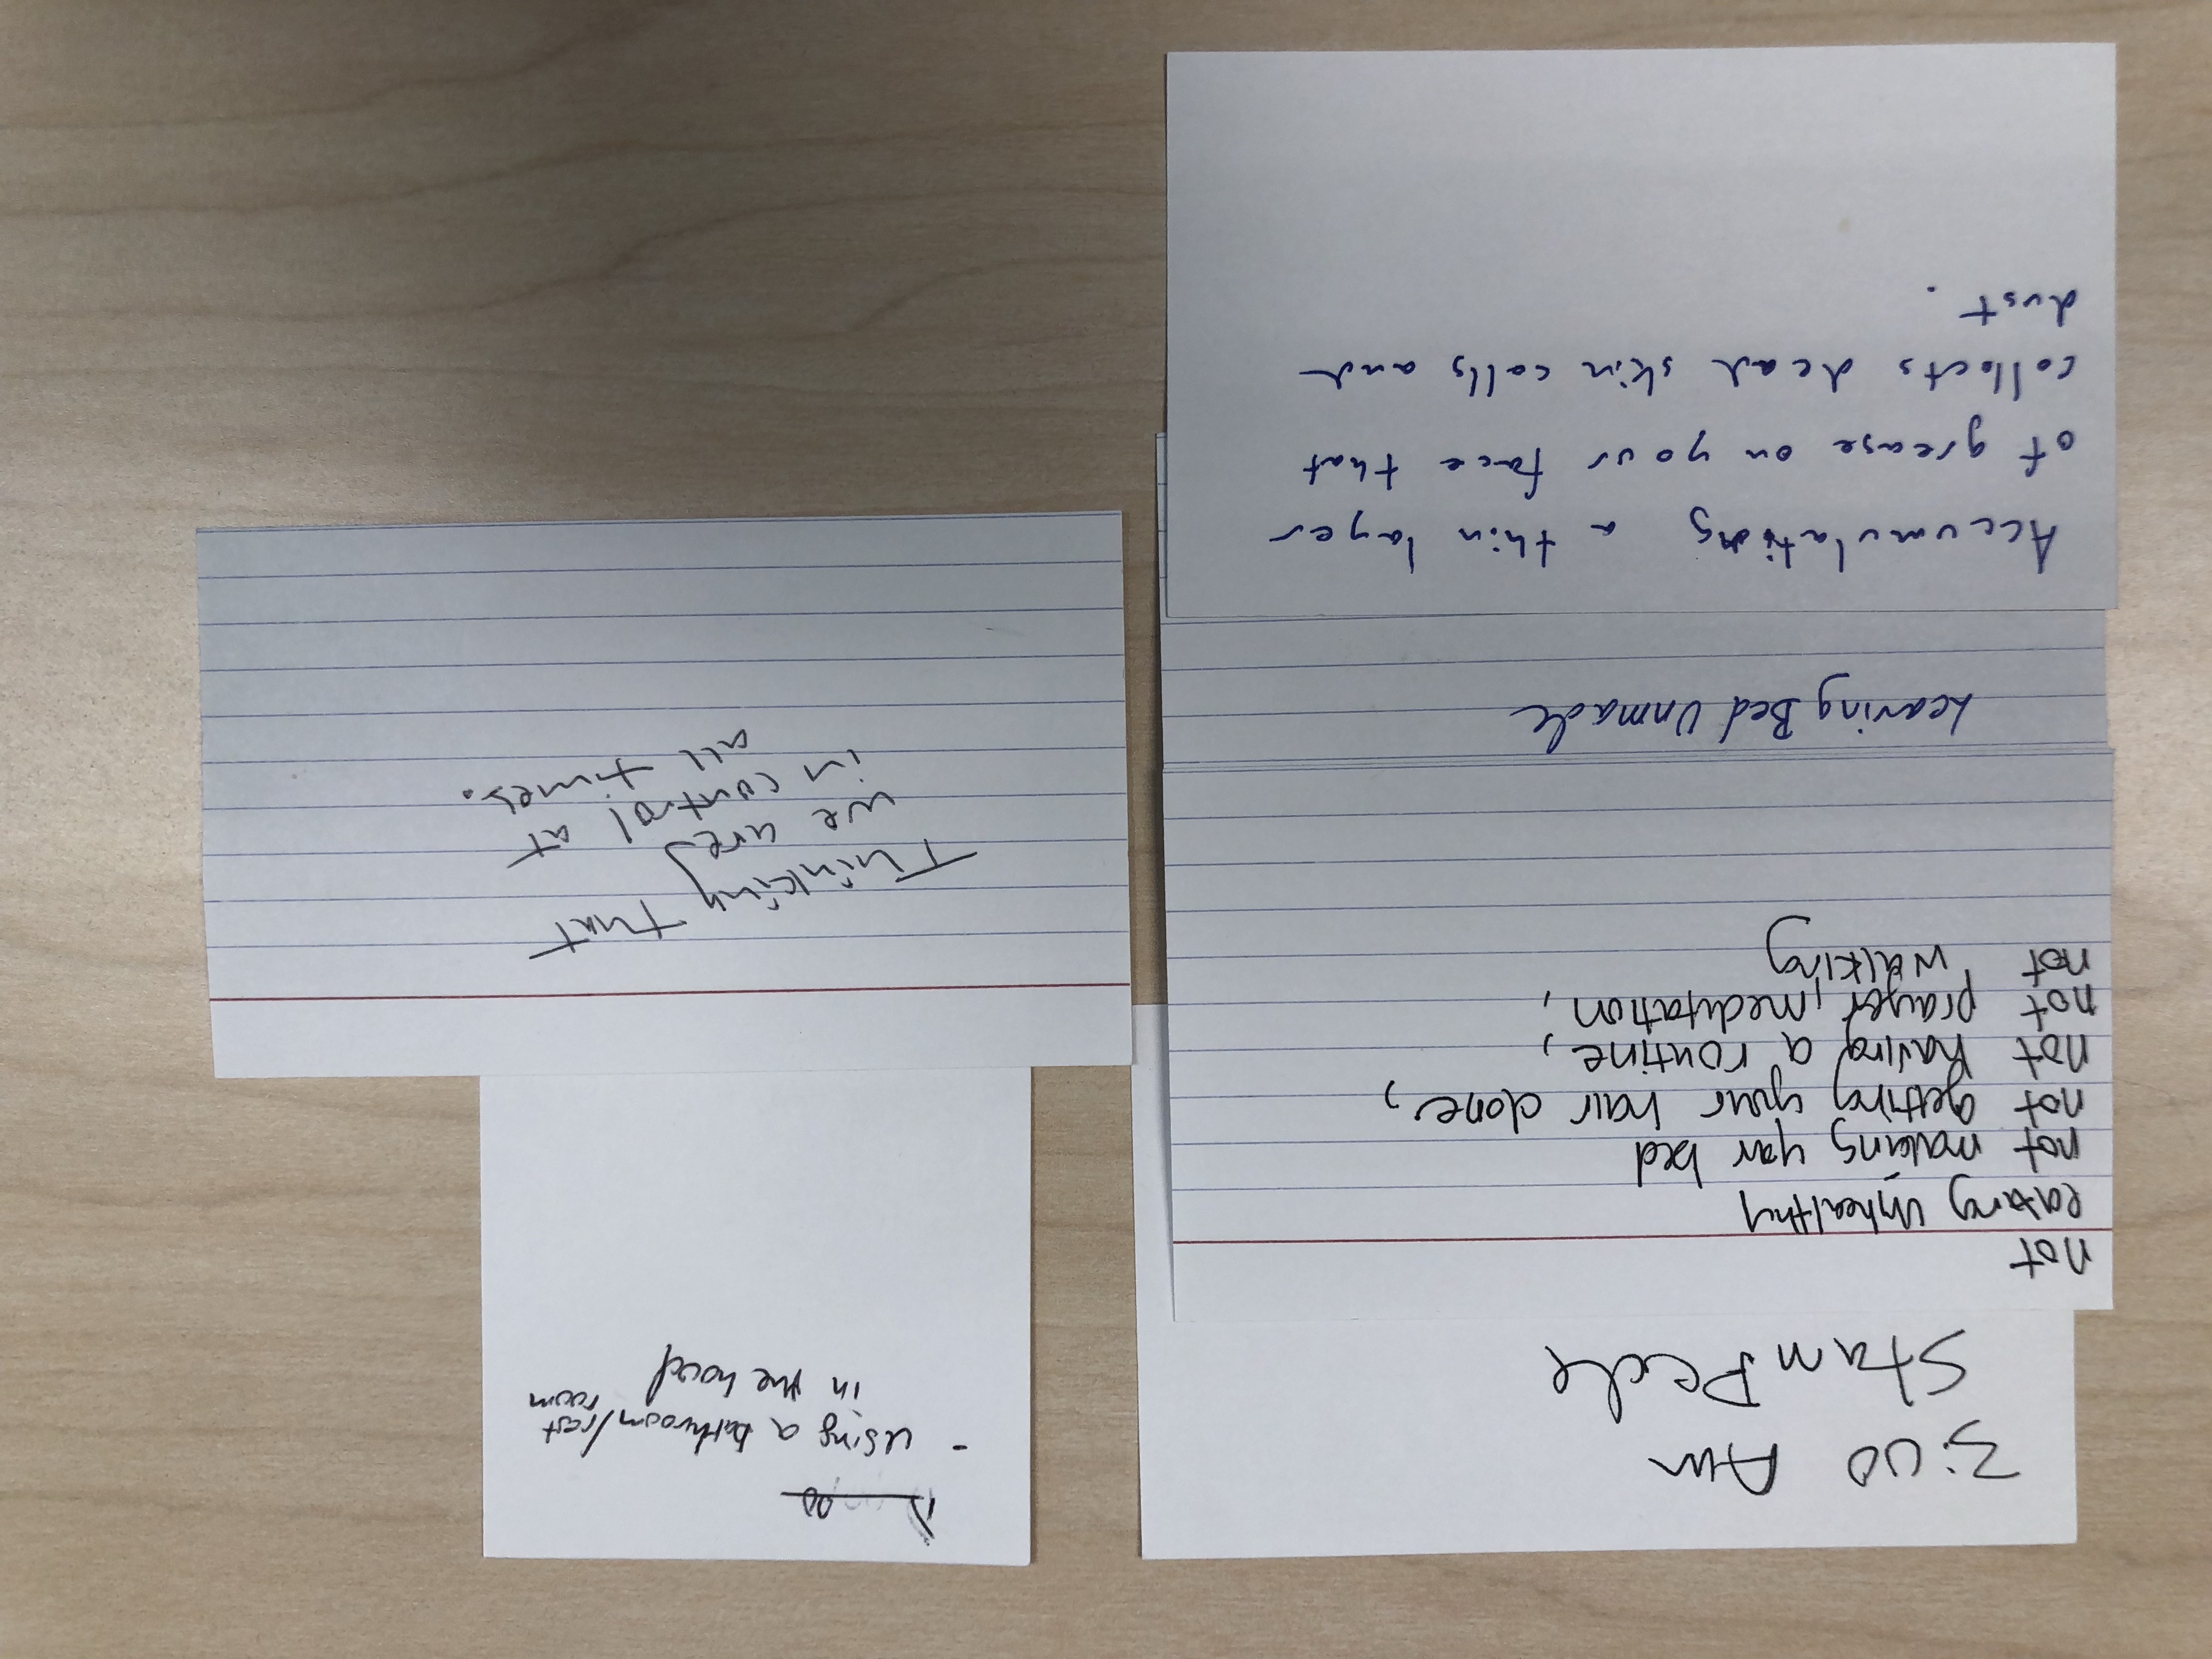 3:00 Am
StamPede
not
eating unhealthy
not making your bed
not getting your hair done,
not having a routine,
not prayer, meditation,
not walking
Leaving Bed Unmade
Accumulating a thin layer
of grease on your face that
collects dead skin cells and
dust.
- using a bathroom/rest
room
in the hood
Thinking that
we are
in control at
all times.